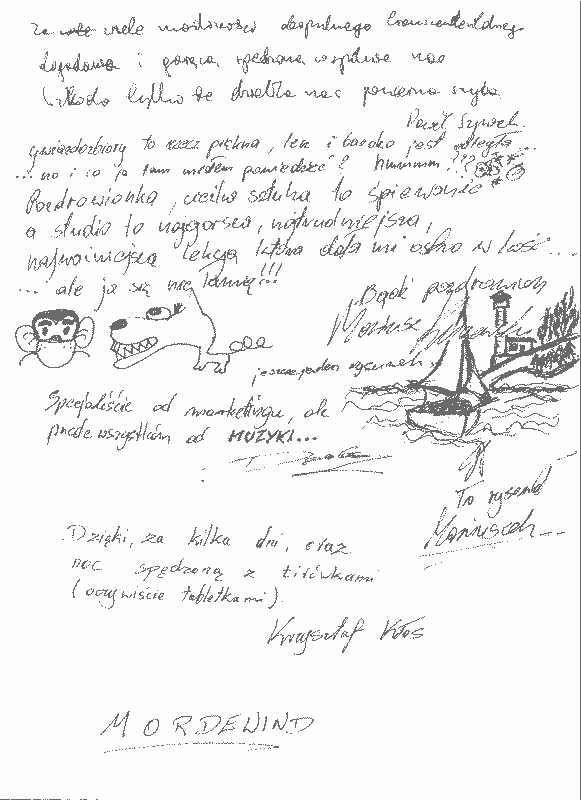 za wiele możliwości
i gorąca spędzona wspólnie noc
Szkoda tylko że nas
Paweł
gwiazdozbiory to rzecz piękna, lecz i bardzo jest odległa...
... no i co ja tam miałem powiedzieć? hmmmmm???
Pozdrowionka, wielka sztuka to śpiewanie
a studio to najgorsza, najtrudniejsza,
najważniejsza lekcja która dała mi ostro w kość...
... ale ja się nie łamię!!!
Bądź pozdrowiony
Mariusz
jeszcze jeden rysunek
Specjaliście od marketingu, ale
przede wszystkim od MUZYKI...
To rysował
Mariuszek
Dzięki, za kilka dni, oraz
noc spędzoną z tirówkami
(oczywiście tabletkami).
Krzysztof Kłos
MORDEWIND